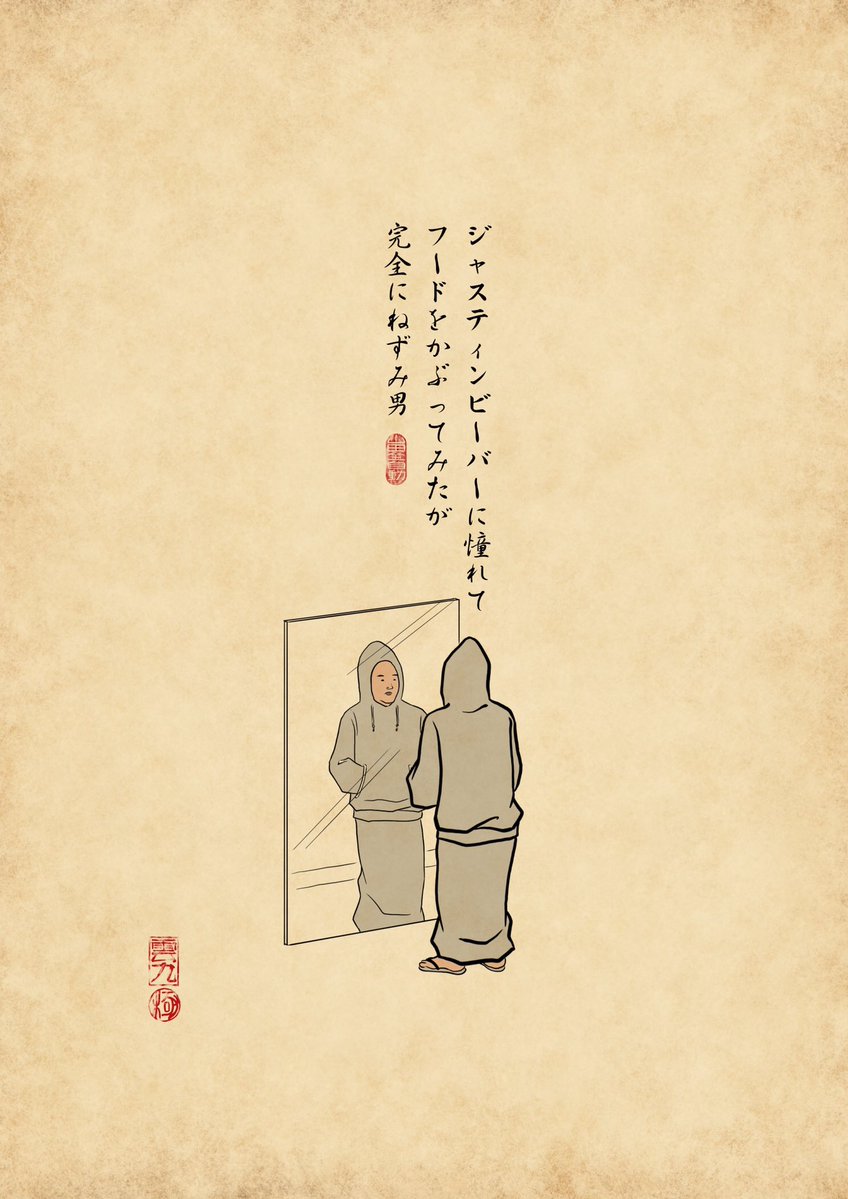 ジャスティンビーバーに憧れて
フードをかぶってみたが
完全にねずみ男